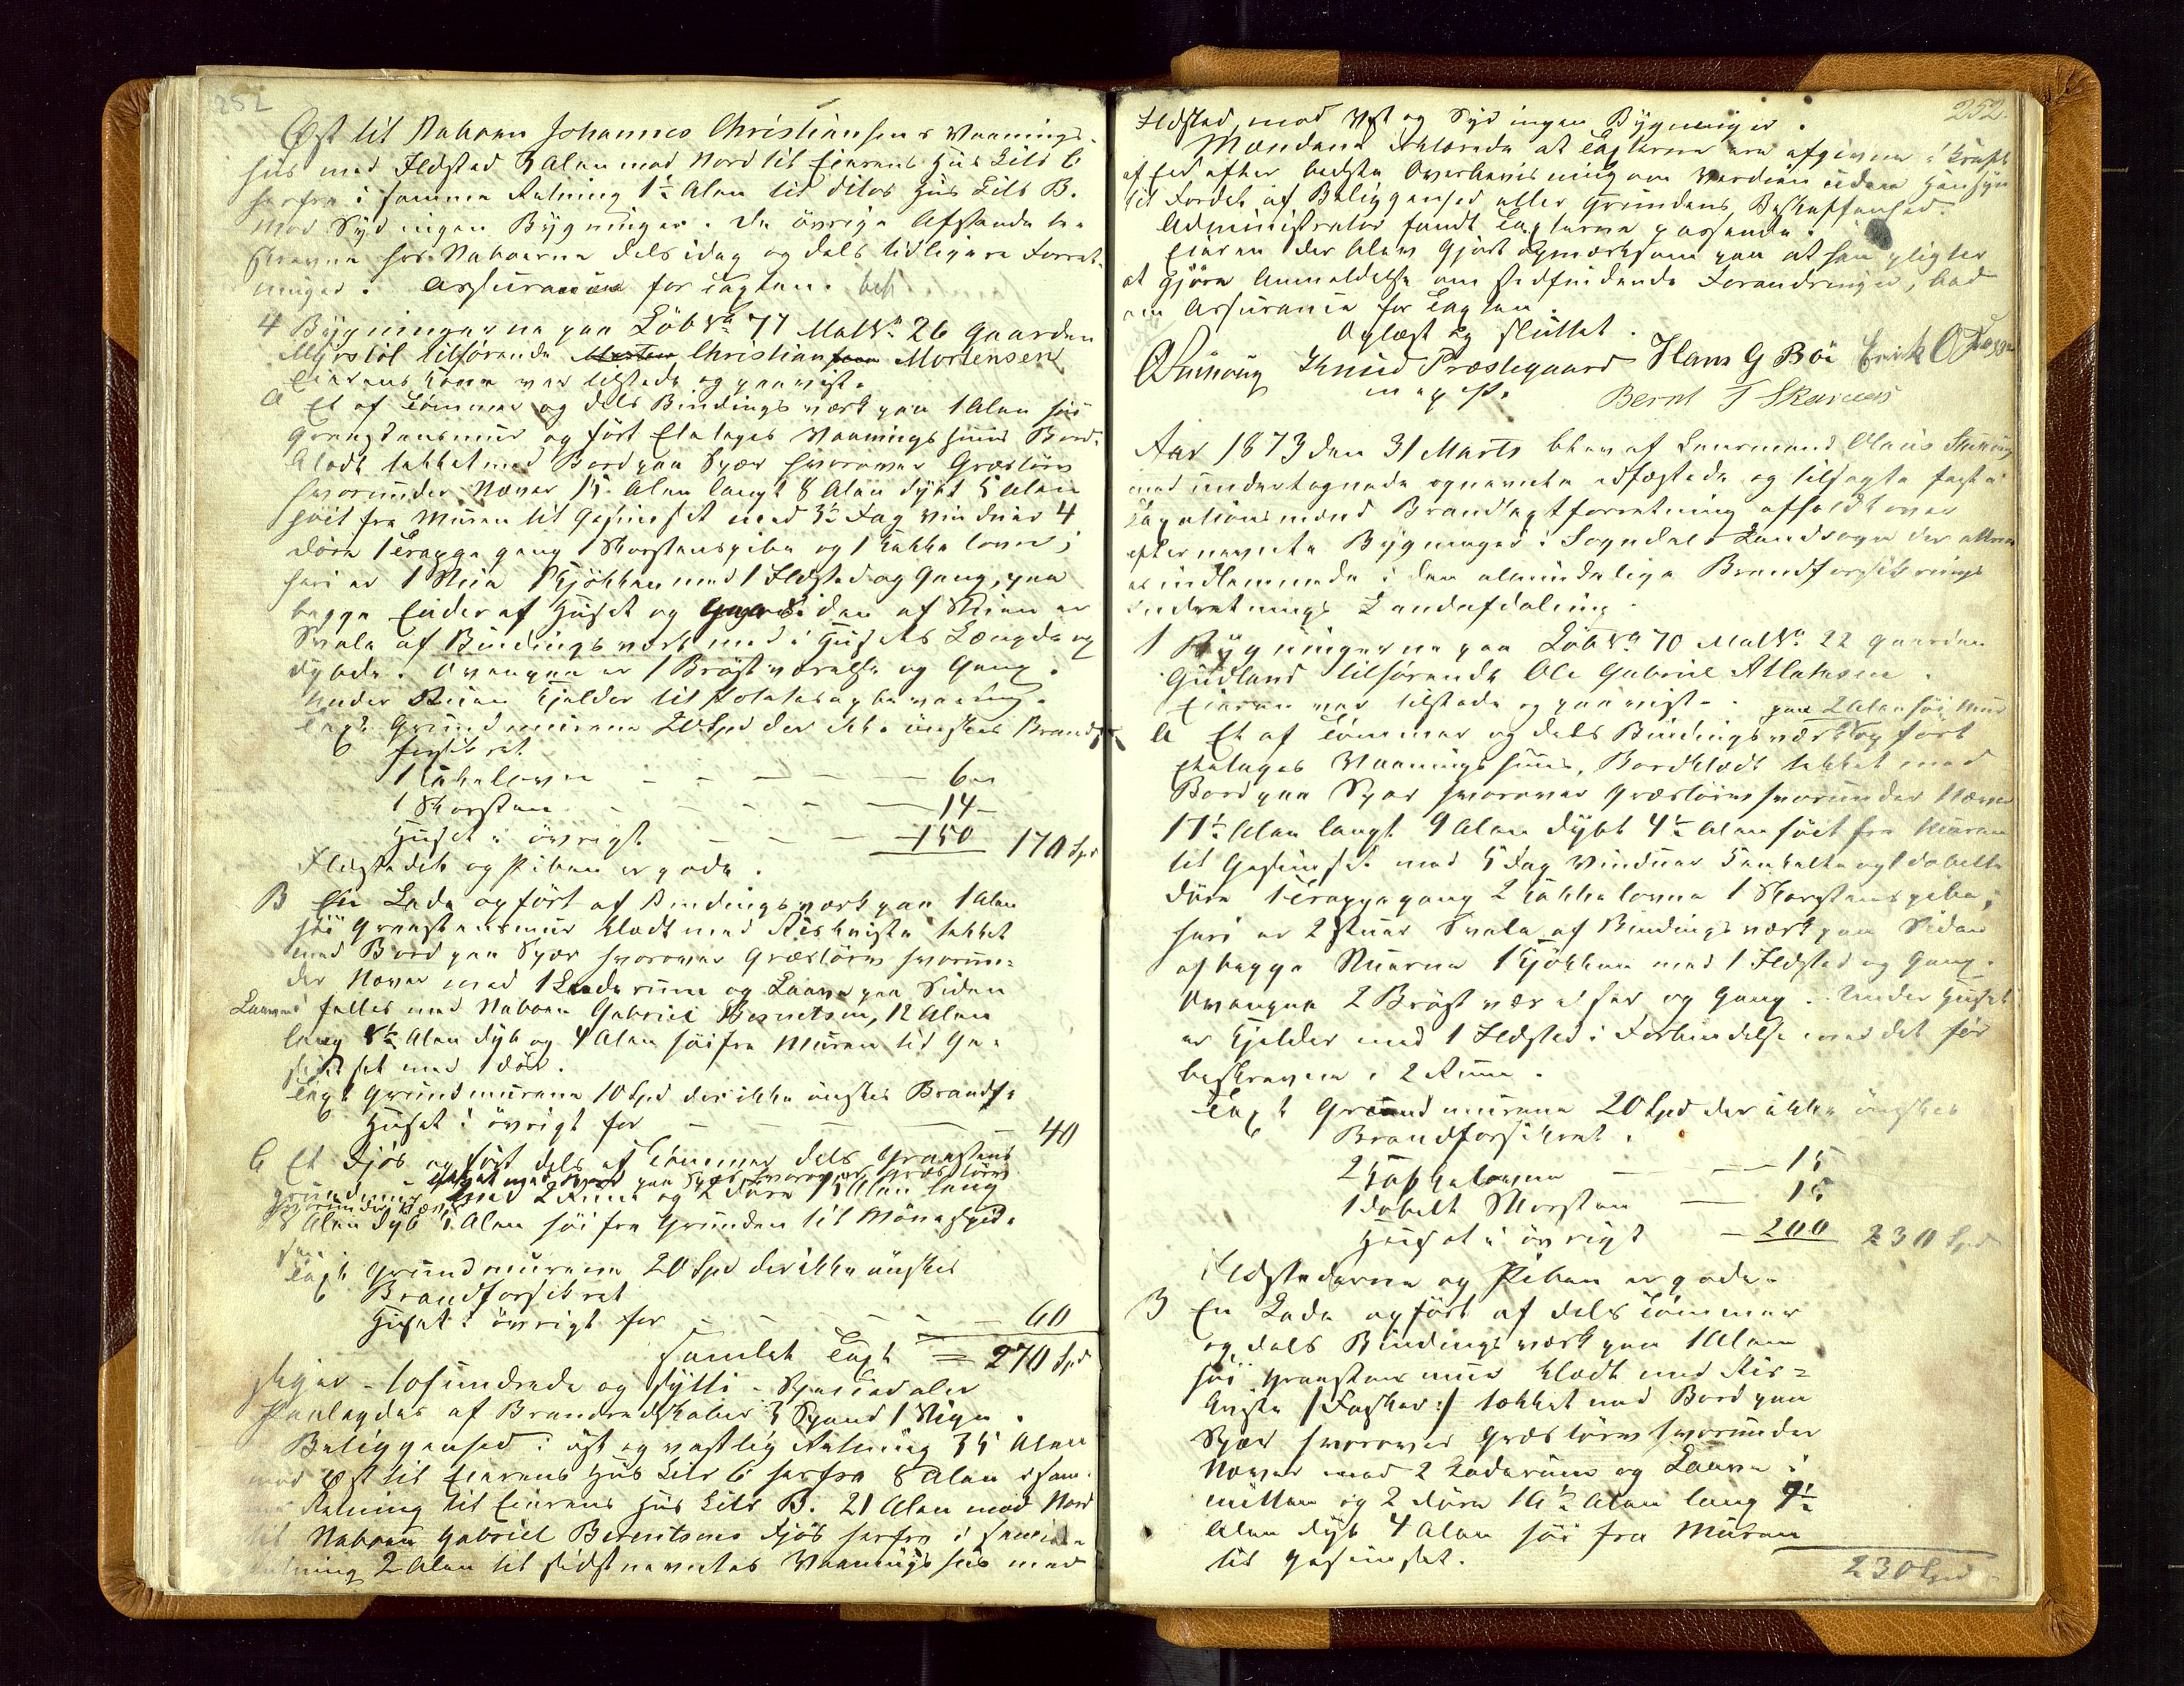 252
Øst til Naboen Johannes Christiansens Vaanings-
huus med Ildsted 3 Alen mod Nord til Eierens Huus Litr C
herfra i samme Retning 1½ Alen til ditos Huus Litr B.
mod Syd ingen Bygninger. De øvrige Afstande be-
skrevne hos Naboerne dels idag og dels tidligere Forret-
ninger. Assurance for Taxten.
4 Bygningerne paa Löb No 77 Matr No 26 Gaarden
Myrstöl tilhørende Christian Mortensen
Eierens Kone var tilstede og paaviste
A Et af Tömmer og dels Bindingsværk paa 1 Alen höi
Graastensmur opført Etetages Vaaningshuus Bord-
klædt tækket med Bord paa Spær hvorover Græstørv
hvorunder Næver 15 Alen langt 8 Alen dybt 5 Alen
höit fra Muren til Gesimset med 3½ Fag Vinduer 4
Döre 1 Trappegang 1 Skorstenspibe og 1 Kakkelovn;
heri er 1 Stue 1 Kjökken med 1 Ildsted og Gang, paa
begge Ender af Huset og Siden af Stuen er
Svale af Bindingsværk med i Husets Længde og
dybde. Ovenpaa er 1 Bröstværelse og Gang.
Under Stuen Kjelder til Potetesopbevaring.
Taxt Grundmurene 20 Spd der ikke ønskes Brand-
forsikret
1 Kakelovn - - - - - 6 -
1 Skorsten - - - - - 14 -
Huset i övrigt - - - - 150 170 Spd
Ildstedet og Piben er gode.
B En Lade opført af Bindingsværk paa 1 Alen
höi Graastensmur klædt med Riskviste tækket
med Bord paa Spær hvorover Græstørv hvorun-
der Næver med 1 Laderum og Laave paa Siden
Laaven fælles med Naboen Gabriel Berentsen, 12 Alen
lang 8½ Alen dyb og 4 Alen höi fra Muren til Ge-
simset med 1 dör.
Taxt Grundmurene 10 Spd der ikke ønskes Brandf.
Huset i övrigt for - - - - - 40
C Et Fjös opført dels af Tömmer dels Graastens
tækket med Bord paa Spær hvorover Græstørv
grundmur med 2 Rum og 2 döre 15 Alen lang
hvorunder Næver
8 Alen dyb 5 Alen höi fra Grunden til Mönespid-
sen.
Taxt Grundmurene 20 Spd der ikke ønskes
Brandforsikret
Huset i övrigt for - - - - - 60
Samlet Taxt = 270 Spd
siger - tohundrede og sytti - Speciedaler
Paalagdes af Brandredskaber 3 Spand 1 Stige.
Beliggenhed: öst og vestlig Retning 35 Alen
mod Öst til Eierens Huus Litr C herfra 8 Alen i sam-
me Retning til Eierens Huus Litr B. 21 Alen mod Nord
til Naboen Gabriel Berentsens Fjös herfra i samme
Retning 2 Alen til sidstnævntes Vaaningshuus med
252.
Ildsted, mod Vest og Syd ingen Bygninger.
Mændene erklærede at Taxterne ere afgivne i Kraft
af Eed efter bedste Overbevisning om Værdien uden Hensyn
til Fordel af Beliggenhed eller Grundens Beskaffenhed.
Administrator fandt Taxterne passende.
Eieren der blev gjort opmærksom paa at han pligter
at gjöre Anmeldelse om stedfindende Forandringer, bad
om Assurance for Taxten.
Oplæst og sluttet.
Knud Præstegaard Hans G Böe Erik O
m. p. P. Bernt T Skarnes
Aar 1873 den 31 Marts blev af Lensmand Olaus
med undertegnede opnævnte edfæstede og tilsagte faste
Taxationsmænd Brandtaxtforretning afholdt over
efternævnte Bygninger i Sogndals Landsogn der
indlemmede i den almindelige Brandforsikrings
indretnings Landafdeling.
1 Bygningerne paa Löb No 70 Matr No 22 Gaarden
Gudland tilhørende Ole Gabriel Atlaksen.
Eieren var tilstede og paaviste. paa 2 Alen höi Mur
A Et af Tömmer og dels Bindingsværk opført
etetages Vaaningshuus, Bordklædt tækket med
Bord paa Spær hvorover Græstørv hvorunder Næver
17½ Alen langt 9 Alen dybt 4½ Alen höit fra Muren
til Gesimset med 5 Fag Vinduer 5 enkelte og 1 dobelte
Döre 1 Trappegang 2 Kakkelovne 1 Skorstenspibe;
heri er 2 Stuer Svale af Bindingsværk paa Siden
af begge Stuerne 1 Kjökken med 1 Ildsted og Gang.
Ovenpaa 2 Bröstværelser og Gang. Under Huset
er Kjelder med 1 Ildsted i Forbindelse med det för
beskrevne i 2 Rum.
Taxt Grundmurene 20 Spd der ikke ønskes
Brandforsikret.
2 Kakkelovne - - - 15
1 dobelt Skorsten - - 15
Huset i övrigt - 200 230 Spd
Ildstederne og Piben er gode.
B En Lade opført af dels Tömmer
og dels Bindingsværk paa 1 Alen
höi Graastens mur klædt med Ris-
kviste tækket med Bord paa
Spær hvorover Græstørv hvorunder
Næver med 2 Laderum og Laave i
mitten og 2 döre 16½ Alen lang 9½
Alen dyb 4 Alen höi fra Muren
til Gesimset.
230 Spd